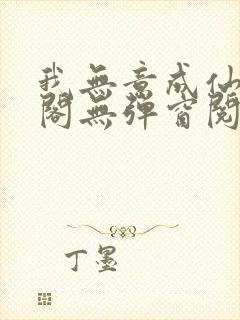 我無意成仙
閣無彈窗閱
丁墨